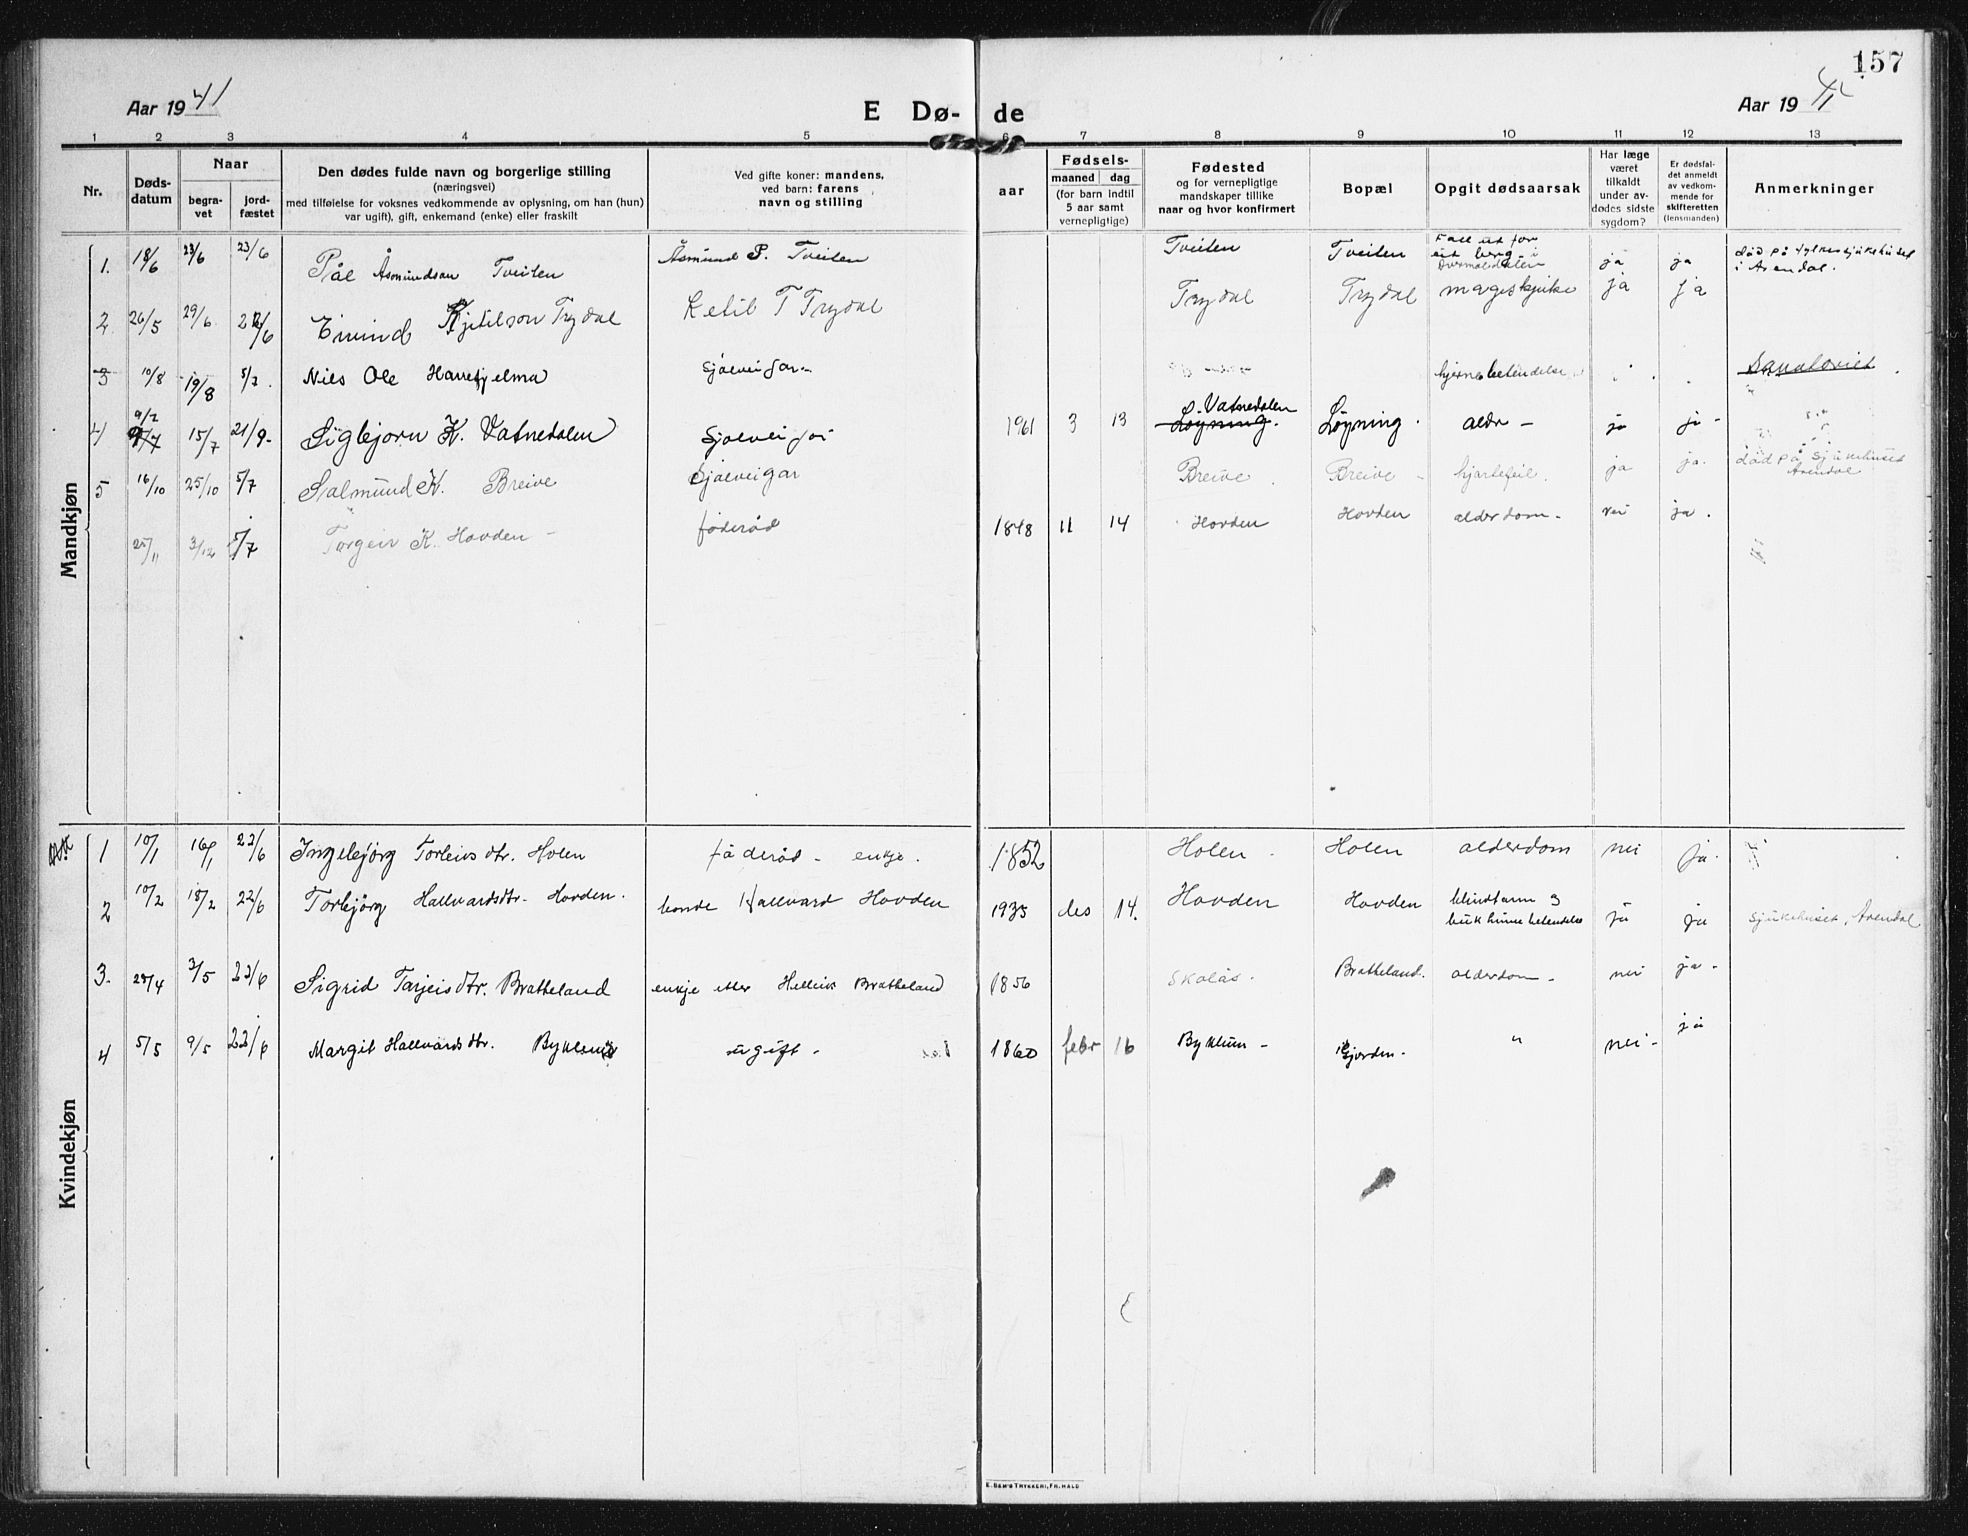 157
Aar 1941
E Dø- de
Aar 1941
1 2 3 4 5 6 7 8 9 10 11 12 13
Nr.
Døds-
datum
Naar
begra-
vet
jord-
fæstet
Den dødes fulde navn og borgerlige stilling
(næringsvei)
med tilføielse for voksnes vedkommende av oplysning, om han (hun)
var ugift), gift, enkemand (enke) eller fraskilt
Ved gifte koner: mandens,
ved barn: farens
navn og stilling
aar
Fødsels-
maaned dag
(for barn indtil
5 aar samt
vernepligtige)
Fødested
og for vernepligtige
mandskaper tillike
naar og hvor konfirmert
Bopæl
Opgit dødsaarsak
Har læge
været
tilkaldt
under av-
dødes sidste
sygdom?
Er dødsfal-
det anmeldt
av vedkom-
mende for
skifteretten
(lensmanden)
Anmerkninger
Mandkjøn
1. 18/6 23/6 23/6 Pål Åsmundson Tveiten Åsmund P. Tveiten Tveiten Tveiten Fall ut for eit berg i ja ja død på fylkessjukehuset i Arendal.
2. 26/5 29/6 22/6 Eivind Kjetilson Trydal Ketil T Trydal Trydal Trydal mageskjuke ja ja
3 10/8 19/8 5/7. Nils Ole Harrefjelma sjølveigar- hjernebetendelse Sanatoriet
4 9/7 15/7 21/9- Sigbjorn K. Vatnedalen Sjølveigar 1961 3 13 L. Vatnedalen Løyning. Løyning. aldr - ja ja -
5 16/10 25/10 5/7 Salmund K. Breive Sjølveigar Breive. Breive - hjartefeil. ja ja. død på sjukehuset Arendal
25/11 3/12 5/7 Torgeir K. Hovden - føderåd 1848 11 14 Hovden Hovden alderdom - nei ja.
Kvindekjøn
1 10/1 16/1 22/6 Ingebjörg Torleivsdtr. Holen føderåd - enkje. 1852 Holen. Holen alderdom nei ja.
2 10/2 18/2 22/6 Torbjörg Hallvardsdtr. Hovden. bonde Hallvard Hovden 1935 des 14. Hovden Hovden blindtarm og bukhinnebetendelse ja ja sjukehuset, Arendal
3. 28/4 3/5 22/6 Sigrid Tarjeisdtr. Bratteland enkje etter Helleik Bratteland 1856 Skolås. Bratteland. alderdom - nei ja -
4 5/5 9/5 22/6 Margit Hallvardsdtr. Byklum ugift - 1860 febr 16 Byklum - Gjorden. " nei - ja
E. SEM'S TRYKKERI, FR.HALD